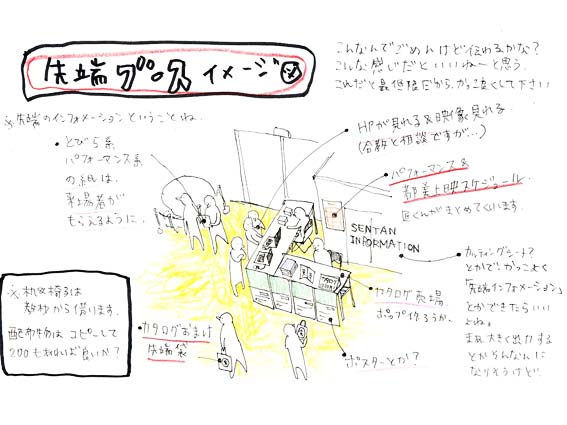 先端ブース イメージ図
こんなんでごめんけど伝わるかな?
こんな感じだといいね〜と思う。
これだと最低限だから、かっこ良くして下さい
※先端のインフォメーションということね。
・とびら系
パフォーマンス系
の紙は、
来場者が
もらえるように。
HPが見れる&映像見れる。
(台数と相談ですが…)
パフォーマンス&
都美上映スケジュール
匠くんがまとめてくれます。
SENTAN
INFORMATION
カッティングシート?
とかで かっこよく
「先端インフォメーション」
とかできたらいい
よね。
まあ大きく出力する
とかそんなんに
なりそうけど…
カタログ売場
ポップ作ろうか。
ポスターとか?
・カタログおまけ
先端袋
※机&椅子は
教務から借ります。
配布物は コピーして
200もあれば良いか?